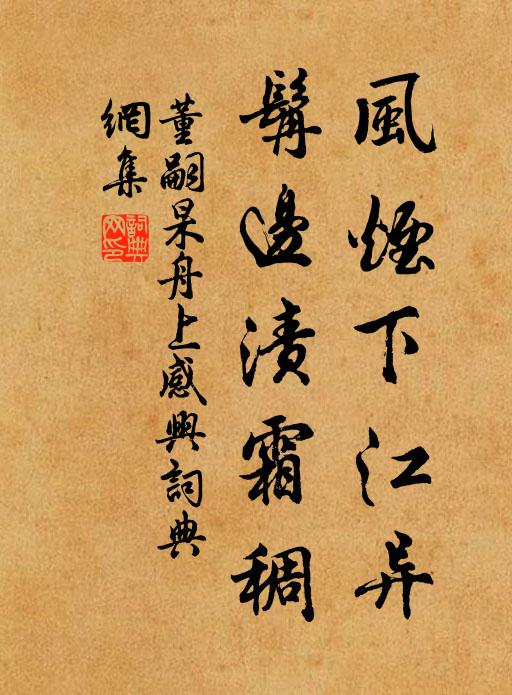 風煙下江异
鬢邊漬霜稠
董嗣杲舟上感興詞典
網集
詞典網印